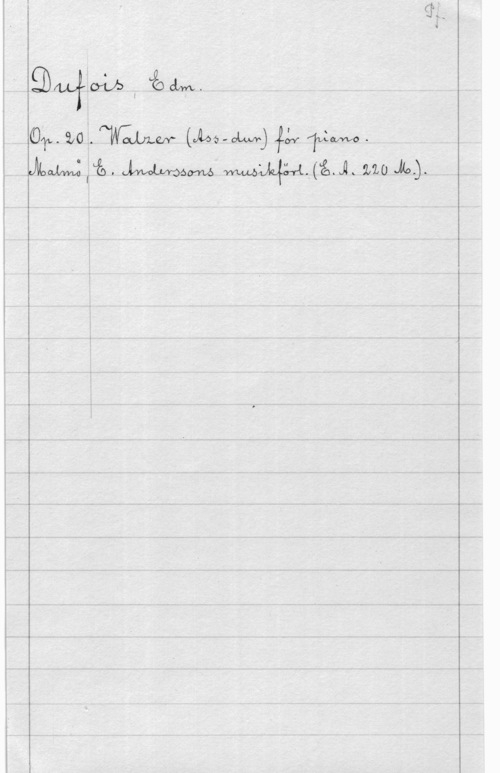 Pf.
Dufois, Edm.
Op. 20. Walzer (Ass-dur) för piano.
Malmö, E. Anderssons musikförl. (E. A. 220 M.).